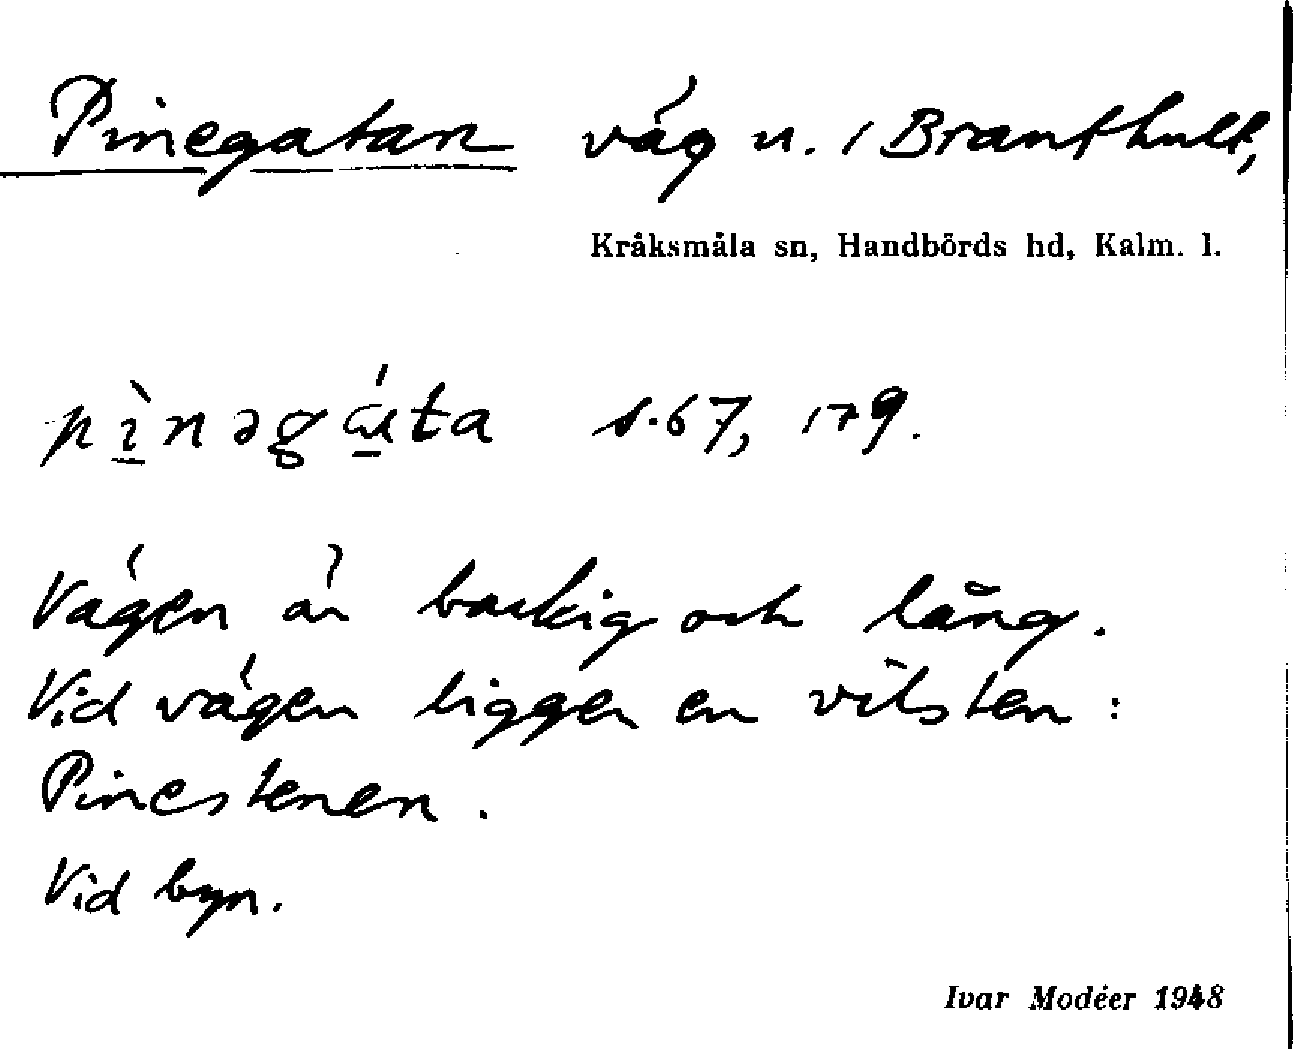 Pinegatan väg u. i Branthult,
Kråksmåla sn, Handbörds hd, Kalm. l.
pìnəgáta s. 67, 179.
Vägen är backig och lång.
Vid vägen ligger en vilsten :
Pinestenen.
Vid byn.
Ivar Modéer 1948